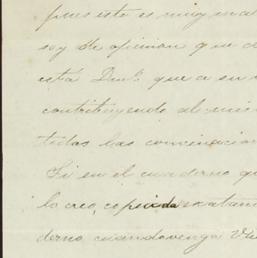 pues este es muy ma
soy de opinion que d
está Dn. que a su
contribuyendo al mis
todas las convinacion
Si en el cuaderno qu
lo creo, copiada exatam
derno cuando venga